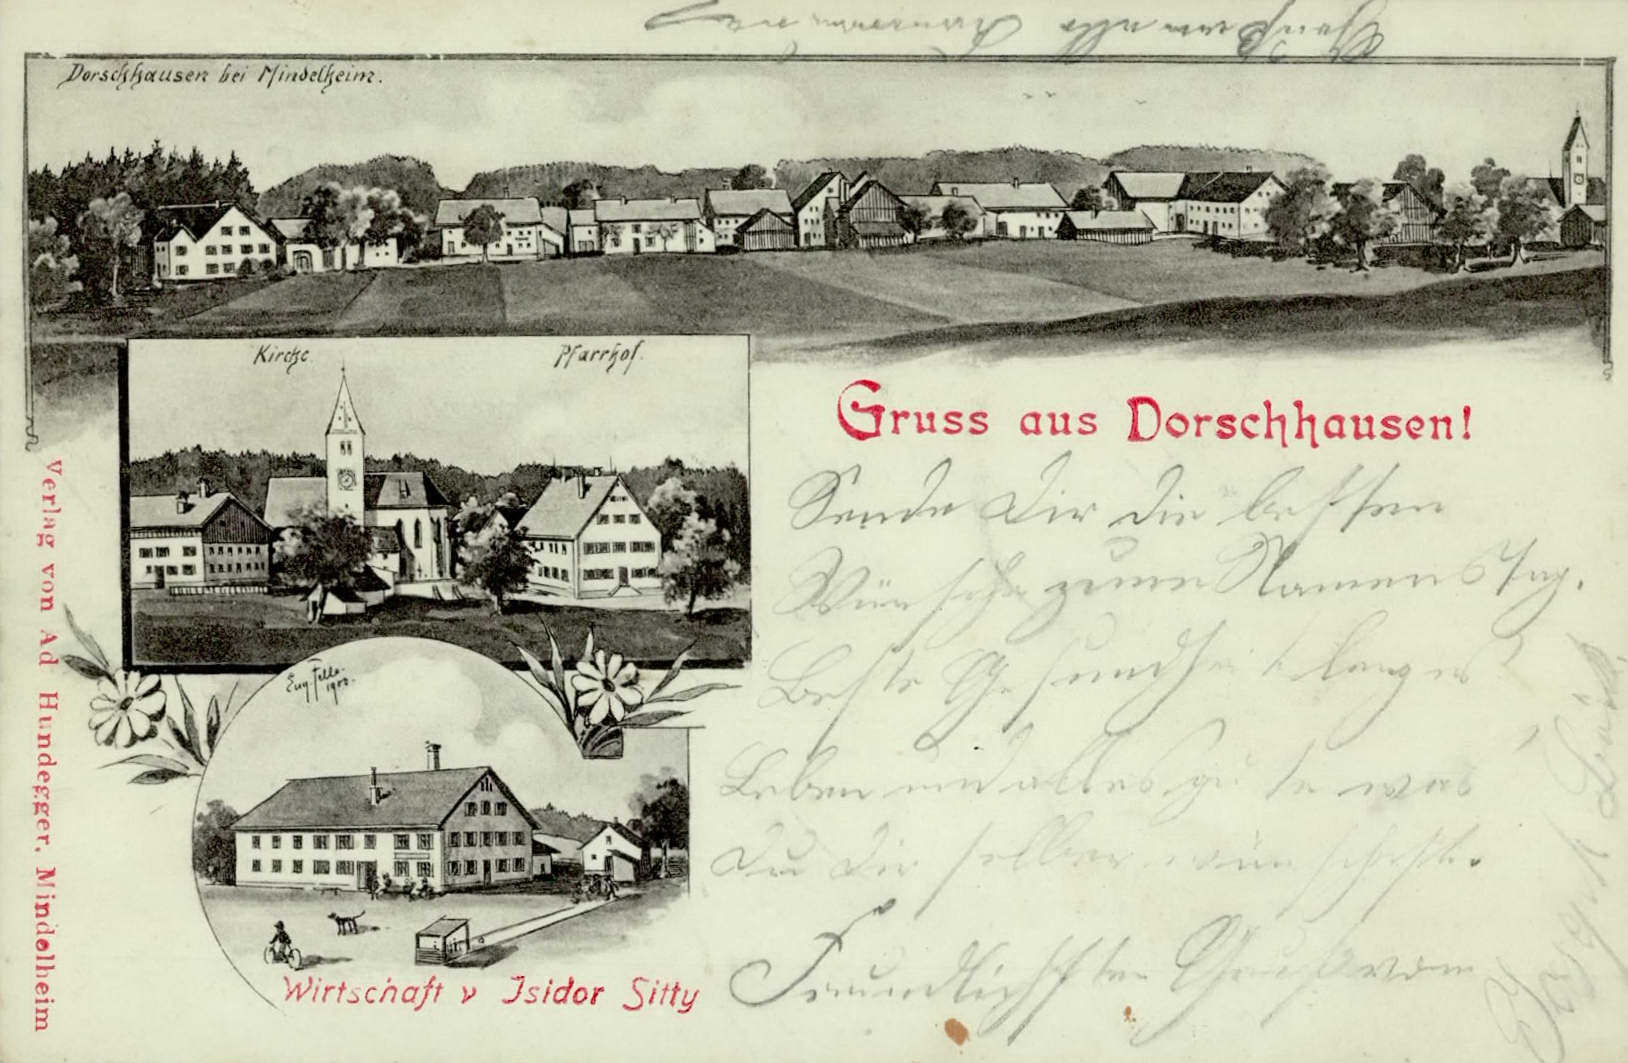 Gruß von alle
Dorschhausen bei Mindelheim.
Kirche.
Pfarrhof.
Gruss aus Dorschhausen!
Sende Dir die besten
Wünsche zum Namenstag.
Beste Gesundheit langes
Leben und alles gute was
Du Dir selber wünschst.
Freundlichsten Gruß von
Eug. Felle.
1900.
Wirtschaft v Isidor Sitty
Verlag von Ad Hundegger, Mindelheim